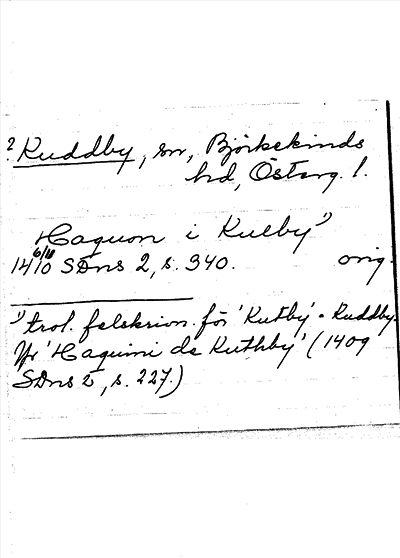 ? Kuddby, sn, Björkekinds
hd, Österg. l.
Haquon i Kulby ¹)
6/4
1410 SDns 2, s. 340. orig.
¹) trol. felskrivn. för 'Kutby' = Kuddby.
Jfr 'Haquini de Kuthby' (1409
SDns 2, s. 227.)